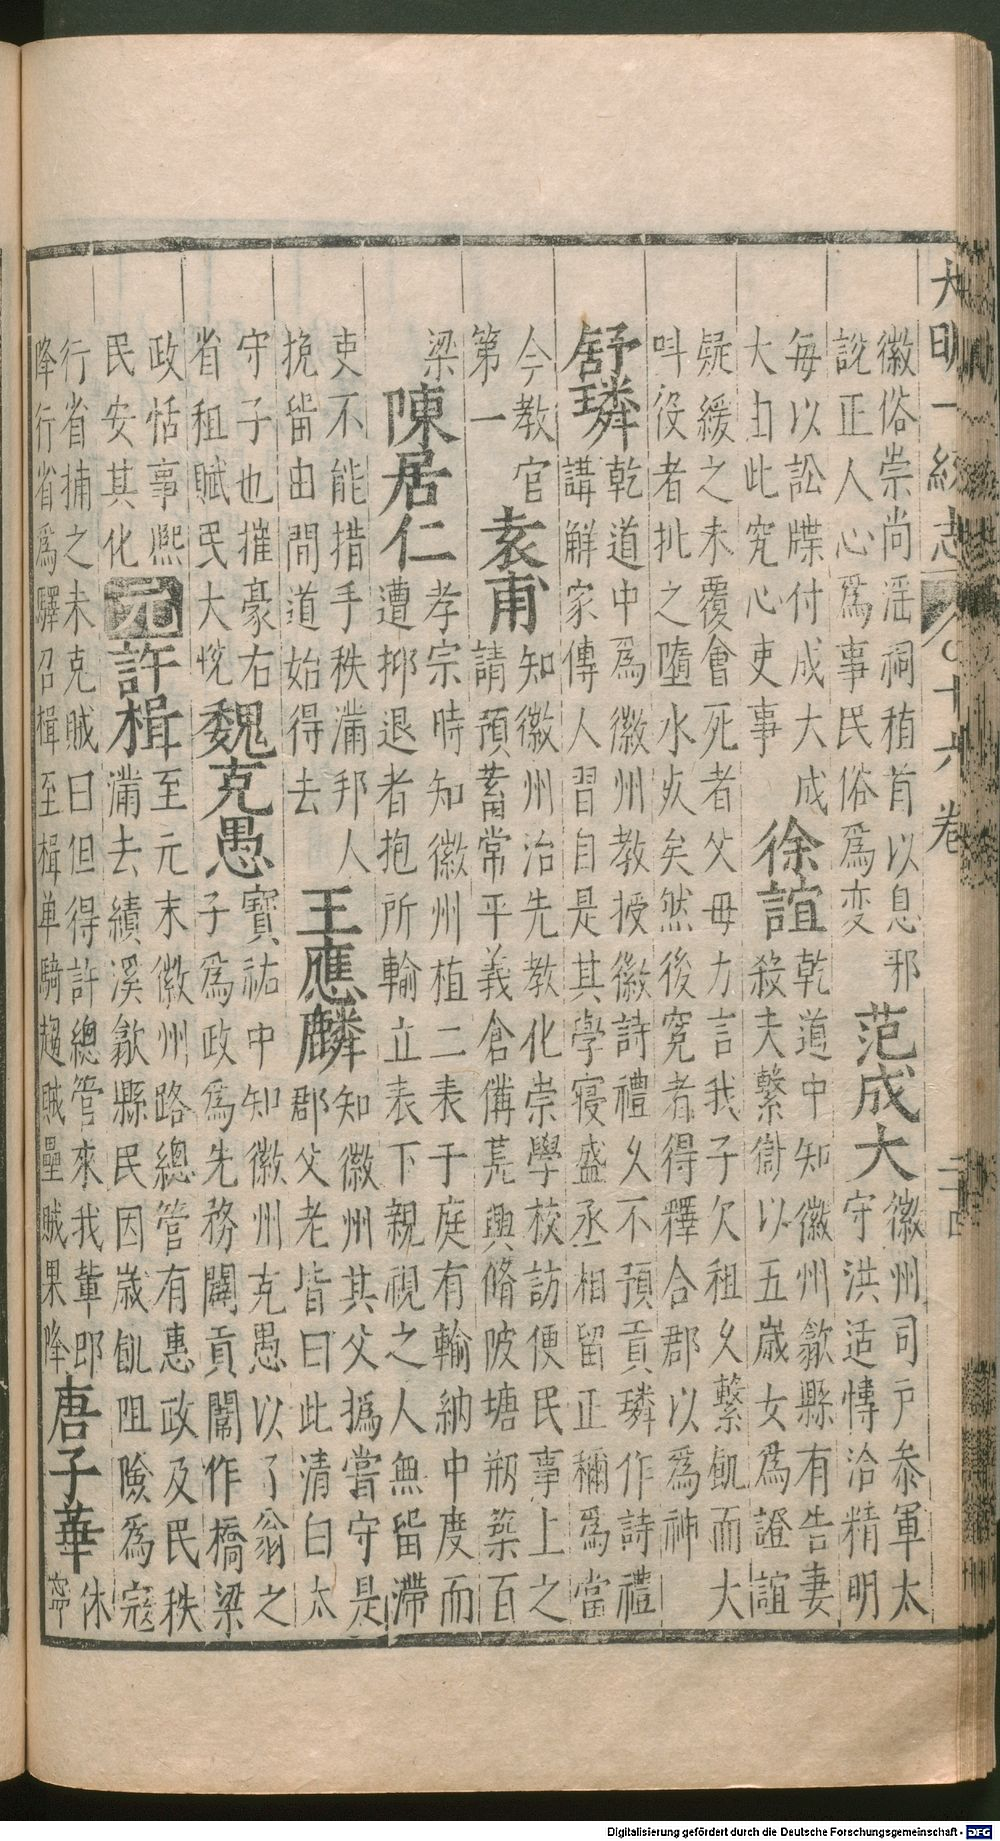 大明一統志 卷之十六卷 二十四
徽俗崇尚淫祠植首以息邪
說正人心爲事民俗爲变
范成大
徽州司户叅軍太
守洪适慱洽精明
每以訟牒付成大成
大由此究心吏事
徐誼
乾道中知徽州歙縣有告妻
殺夫繫獄以五歲女爲證誼
疑緩之未覆會死者父母力言我子欠租乆繫飢而大
呌役者批之墮水灰矣然後寃者得釋合郡以爲神
舒璘
乾道中爲徽州教授徽詩禮乆不預貢璘作詩禮
講解家傳人習自是其學寖盛丞相留正稱爲當
今教官
第一
袁甫
知徽州治先教化崇學校訪便民事上之
請預蓄常平義倉備荒興脩陂塘剏築百
梁
陳居仁
孝宗時知徽州植二表于庭有輸納中度而
遭抑退者抱所輸立表下親視之人無留滯
吏不能措手秩滿邦人
挽留由間道始得去
王應麟
知徽州其父撝嘗守是
郡父老皆曰此清白太
守子也摧豪右
省租賦民大悅
魏克愚
寶祐中知徽州克愚以了翁之
子爲政爲先務闢貢闈作橋梁
政恬事熈
民安其化
元
許楫
至元末徽州路總管有惠政及民秩
滿去績溪歙縣民因歲飢阻險爲寇
行省捕之未克賊曰但得許總管來我軰即
降行省爲驛召楫至楫单騎趨賊壘賊果降
唐子華
休
寧
Digitalisierung gefördert durch die Deutsche Forschungsgemeinschaft - DFG